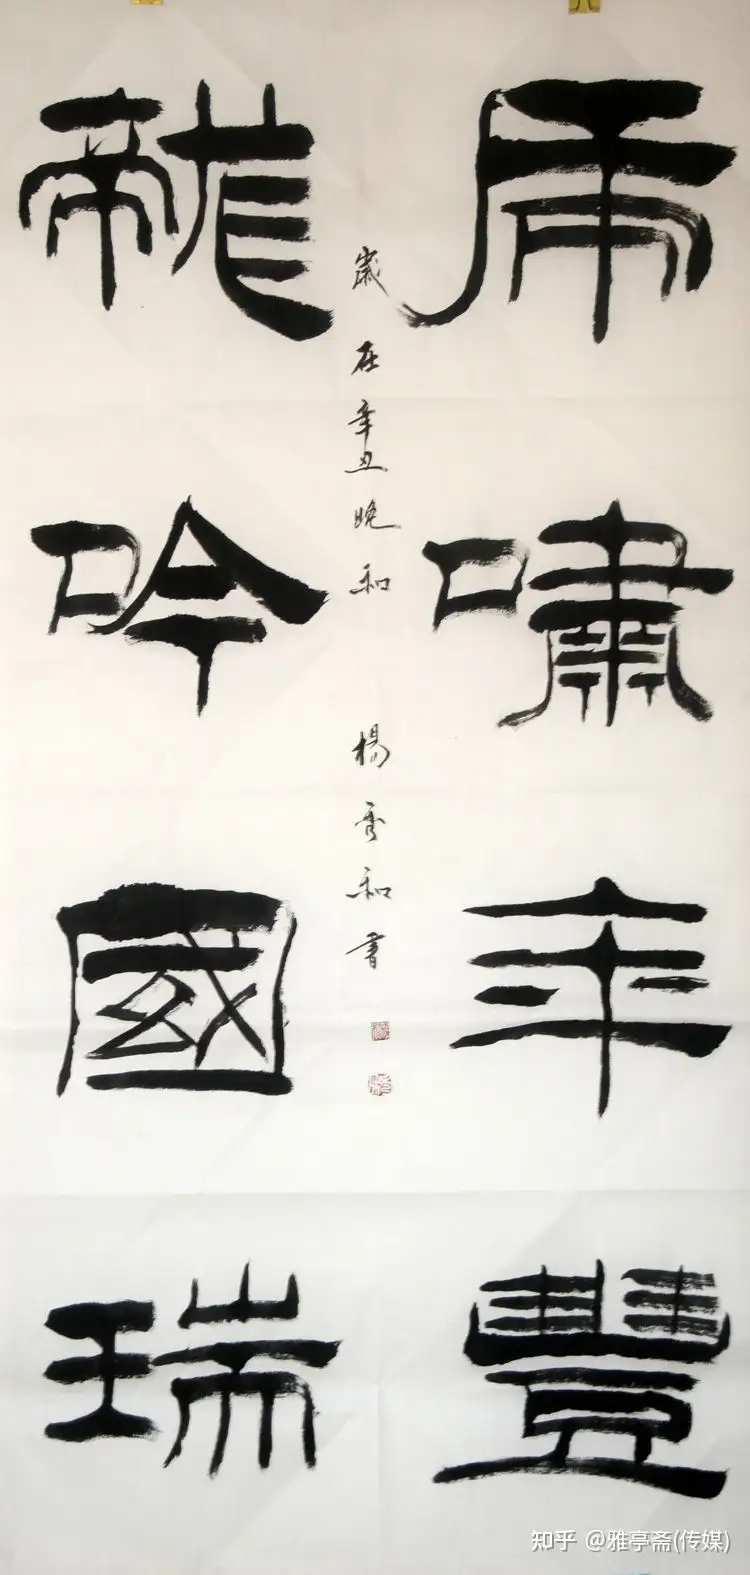 虎啸年豐
龍吟國瑞
歲在辛丑晚和
楊秀和书
知乎 @雅亭斋(传媒)